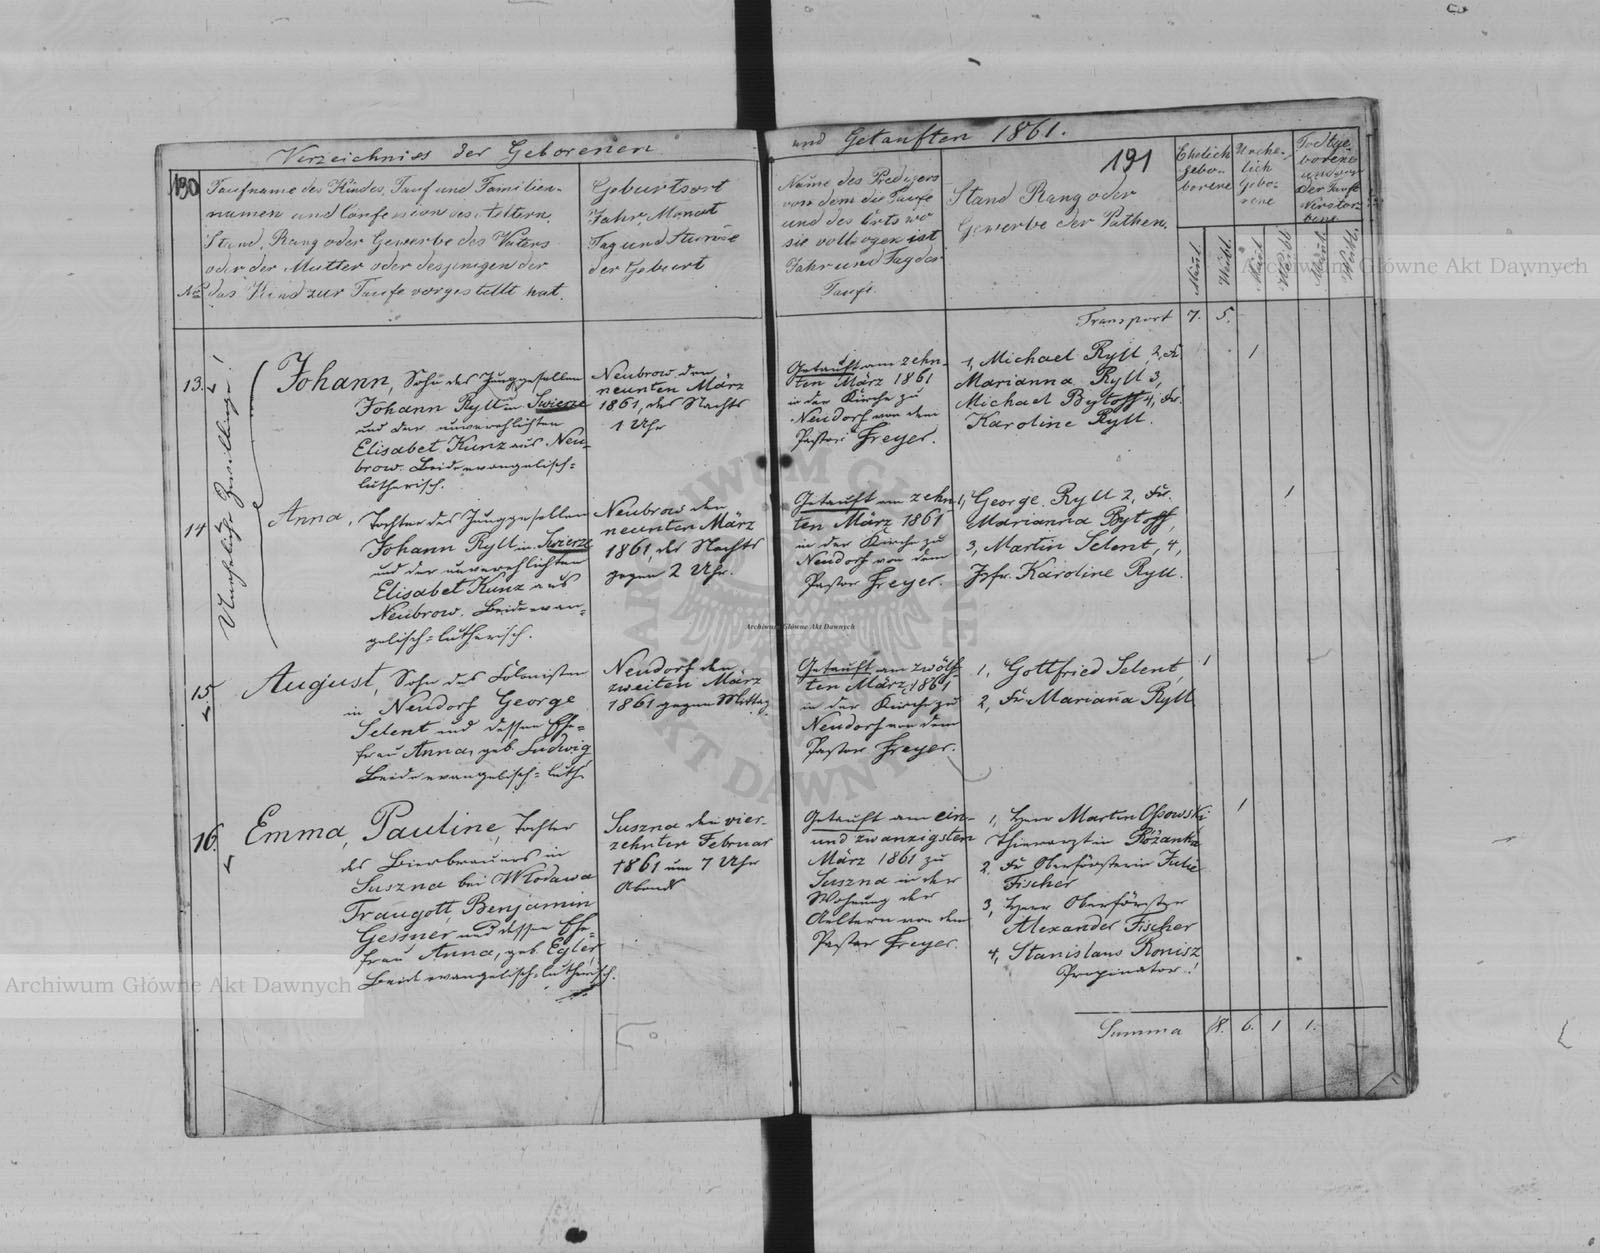 Verzeichniss der Geborenen
130
Taufname des Kindes, Tauf und Familien-
namen und Confession des Aeltern,
Stand, Rang oder Gewerbe des Vaters
oder der Mutter oder desjenigen der
No das Kind zur Taufe vorgestellt hat.
Geburtsort
Jahr, Monat
Tag und Stunde
der Geburt
13.
Uneheliche Zwillinge!
Johann, Sohn des Junggesellen
Johann Ryll in Swierze
und der unverehlichten
Elisabet Kunz aus Neu-
brow. Beide evangelisch-
lutherisch.
Neubrow den
neunten März
1861, des Nachts
1 Uhr
14
Anna, Tochter des Junggesellen
Johann Ryll in Swierze
und der unverehlichten
Elisabet Kunz aus
Neubrow. Beide evan-
gelisch-lutherisch.
Neubrow den
neunten März
1861, des Nachts
gegen 2 Uhr.
15
August, Sohn des Colonisten
in Neudorf George
Selent und dessen Ehe-
frau Anna, geb. Ludwig
Beide evangelisch-luth.
Neudorf den
zweiten März
1861 gegen Mittag
16.
Emma, Pauline, Tochter
des Bierbrauers in
Suszna bei Włodawa
Traugott, Benjamin
Gessner und dessen Ehe-
frau Anna, geb. Egler,
Beide evangelisch-lutherisch.
Suszna den vier-
zehnten Februar
1861 um 7 Uhr
Abends
und Getauften 1861.
191
Name des Predigers
von dem die Taufe
und des Orts wo
sie vollzogen ist
Jahr und Tag der
Taufe.
Stand Rang oder
Gewerbe der Pathen.
Ehelich
gebo-
borene
Unehe-
lich
Gebo-
rene
Todtge-
borene
und vor
der Taufe
Verstor-
bene
Mänl.
Weibl.
Mänl.
Weibl.
Mänl.
Weibl.
Transport 7. 5.
Getauft am zehn-
ten März 1861
in der Kirche zu
Neudorf von dem
Pastor Freyer.
1, Michael Ryll, 2, Fr.
Marianna Ryll 3,
Michael Bytoff 4, Fr.
Karoline Ryll.
1
Getauft am zehn-
ten März 1861
in der Kirche zu
Neudorf von dem
Pastor Freyer.
1, George Ryll 2, Fr.
Marianna Bytoff,
3, Martin Selent, 4,
Jgfr. Karoline Ryll.
1
Getauft am zwölf-
ten März 1861
in der Kirche zu
Neudorf von dem
Pastor Freyer.
1, Gottfried Selent,
2, Fr Marianna Ryll
1
Getauft am ein-
und zwanzigsten
März 1861 zu
Suszna in der
Wohnung der
Aeltern von dem
Pastor Freyer.
1, Herr Martin Ossowski
Thierarzt in Różanka
2, Fr Oberförsterin Julie
Fischer
3, Herr Oberförster
Alexander Fischer
4, Stanislaus Ronisz
Propinator.!
1
Summa 8. 6. 1 1.
Archiwum Główne Akt Dawnych
Archiwum Główne Akt Dawnych
Archiwum Główne Akt Dawnych
ARCHIWUM GŁÓWNE AKT DAWNYCH